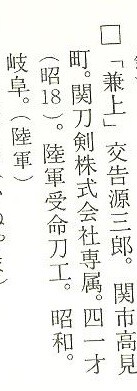 □「兼上」交告源三郎。 関市高見
町。関刀剣株式会社専属。四一才
（昭18）。陸軍受命刀工。 昭和。
岐阜。（陸軍）